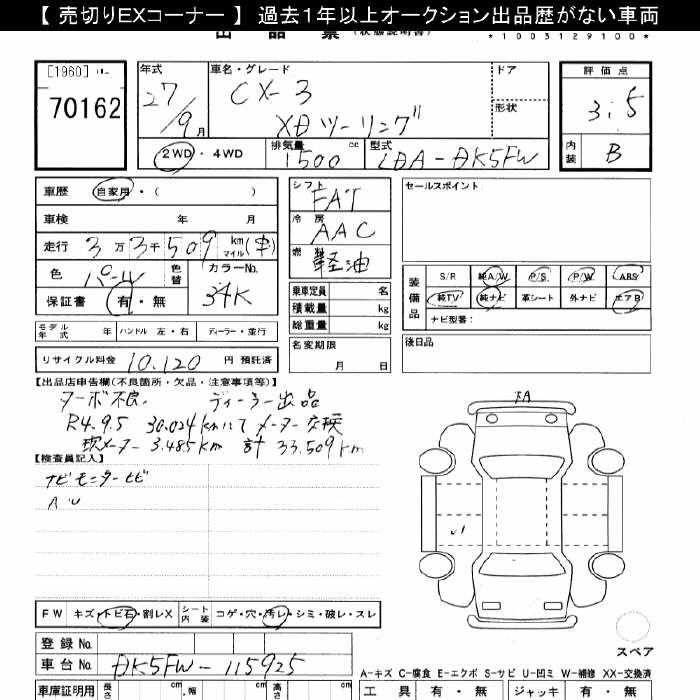 【 売切りEXコーナー 】 過去1年以上オークション出品歴がない車両
出 品 票 (状態説明書)
*1003129100*
[1960]
70162
年式 27/9月
車名・グレード CX-3
XDツーリング
ドア
形状
評価点 3.5
内装 B
2WD・4WD
排気量 1500 cc
型式 LDA-DK5FW
車歴 自家用・( )
車検 年 月
走行 3万3千509 km マイル
色 パール 色替
カラーNo. 34K
保証書 有・無
シフト FAT
冷房 AAC
燃料 軽油
乗車定員 名
積載量 kg
総重量 kg
名変期限 月 日
セールスポイント
装備品
S/R 純A/W P/S P/W ABS
純TV 純ナビ 革シート 外ナビ エアB
ナビ型番:
後日品
モデル年式 年 ハンドル 左・右 ディーラー・並行
リサイクル料金 10,120 円 預託済
【出品店申告欄(不良箇所・欠品・注意事項等)】
ターボ不良. ディーラー出品
R4.9.5 30.024kmにてメーター交換
現メーター 3.485km 計 33.509km
【検査員記入】
ナビモニターヒビ
AU
FW キズ・トビ石・割レX シート内装 コゲ・穴・汚レ・シミ・破レ・スレ
登録No.
車台No. DK5FW-115925
車庫証明用 長さ cm 幅 cm 高さ cm
スペア
A-キズ C-腐食 E-エクボ S-サビ U-凹ミ W-補修 XX-交換済
工具 有・無 ジャッキ 有・無